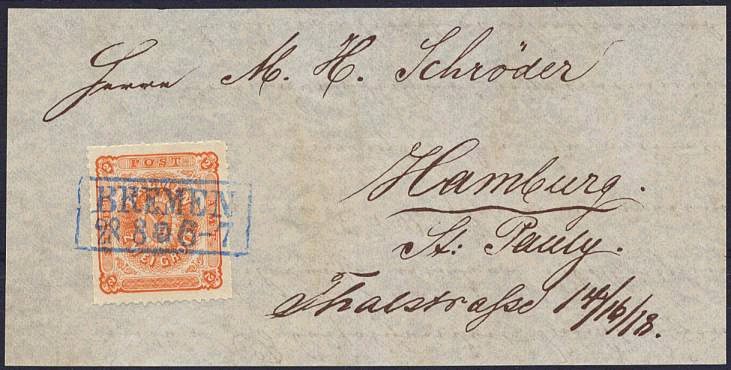 Herrn M. H. Schröder
Hamburg.
St: Pauly.
Thalstrasse 14/16/18.
2 POST 2
BREMEN
28 8 6-7
2 2